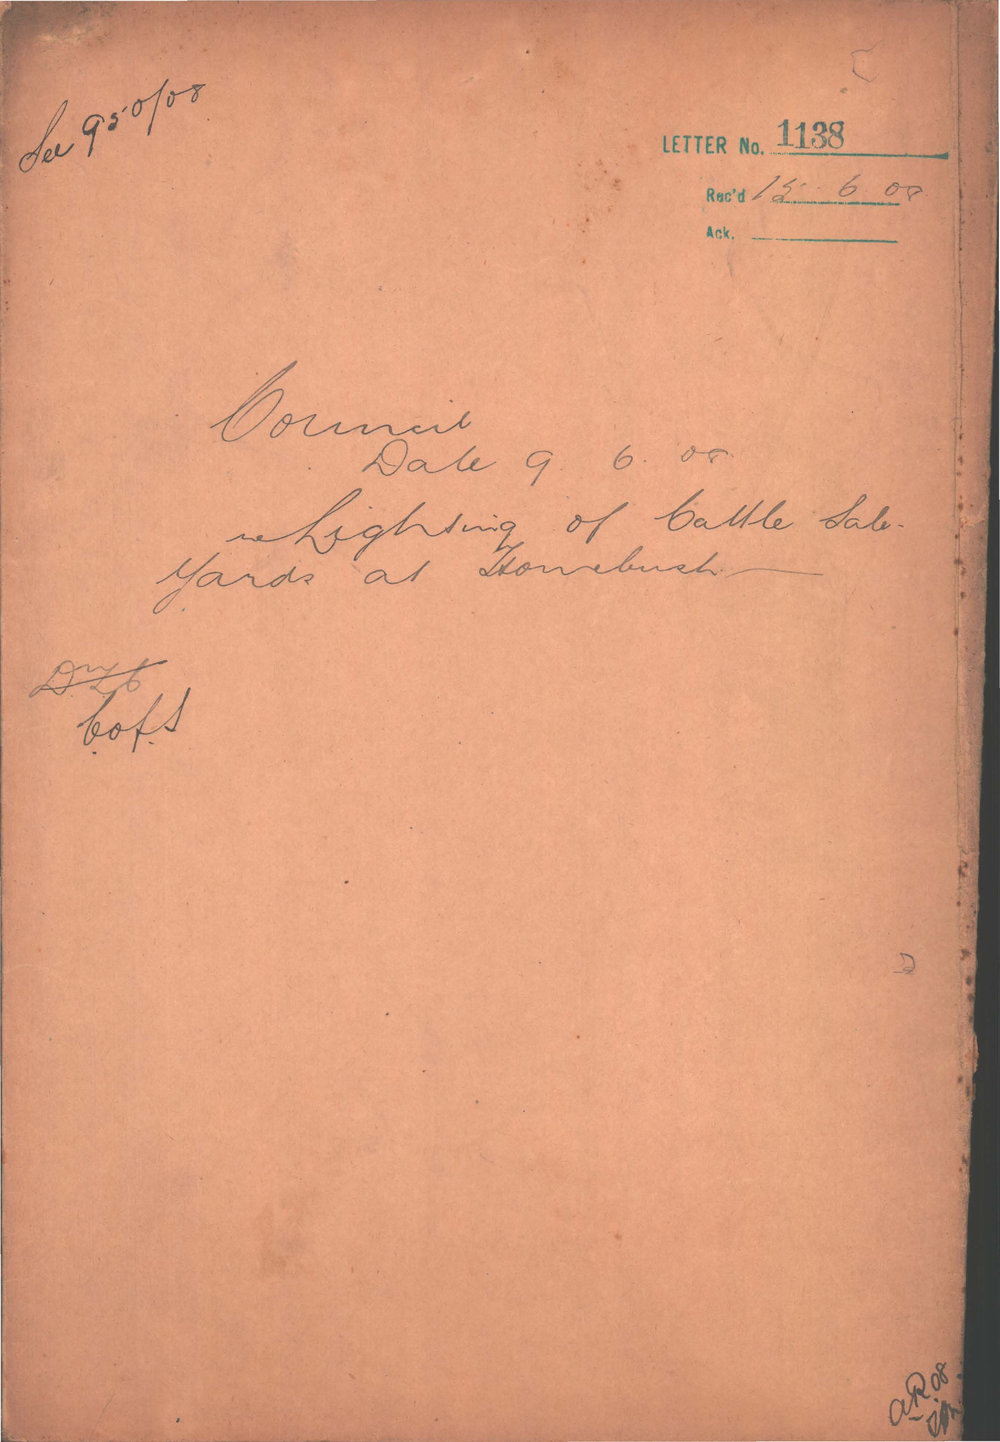 See 950/08
LETTER No. 1138
Rec'd 15. 6 08
Ack.
Council
Date 9. 6. 08
re Lighting of Cattle Sale-
Yards at Homebush
C.of.S